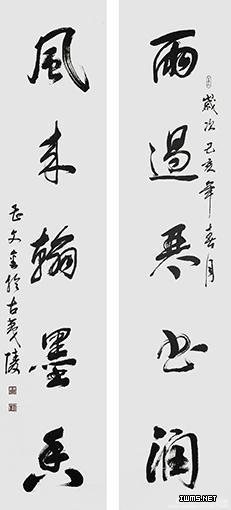 雨過琴書潤
歲次己亥年春月
風來翰墨香
文書於古夷陵
IWMS.NET